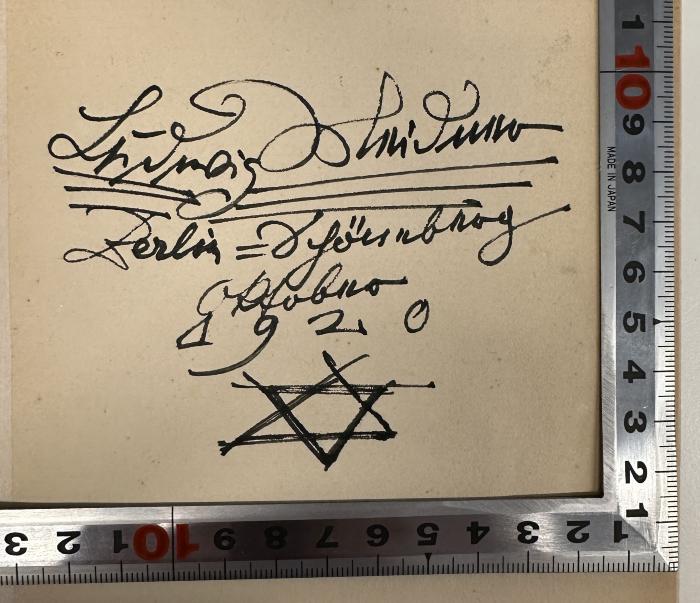 Ludwig Meidner
Berlin=Schöneberg
Oktober
1920
1
10
9
8
MADE IN JAPAN
7
6
5
4
3
2
1
3 2 1 10 9 8 7 6 5 4 3 2 1